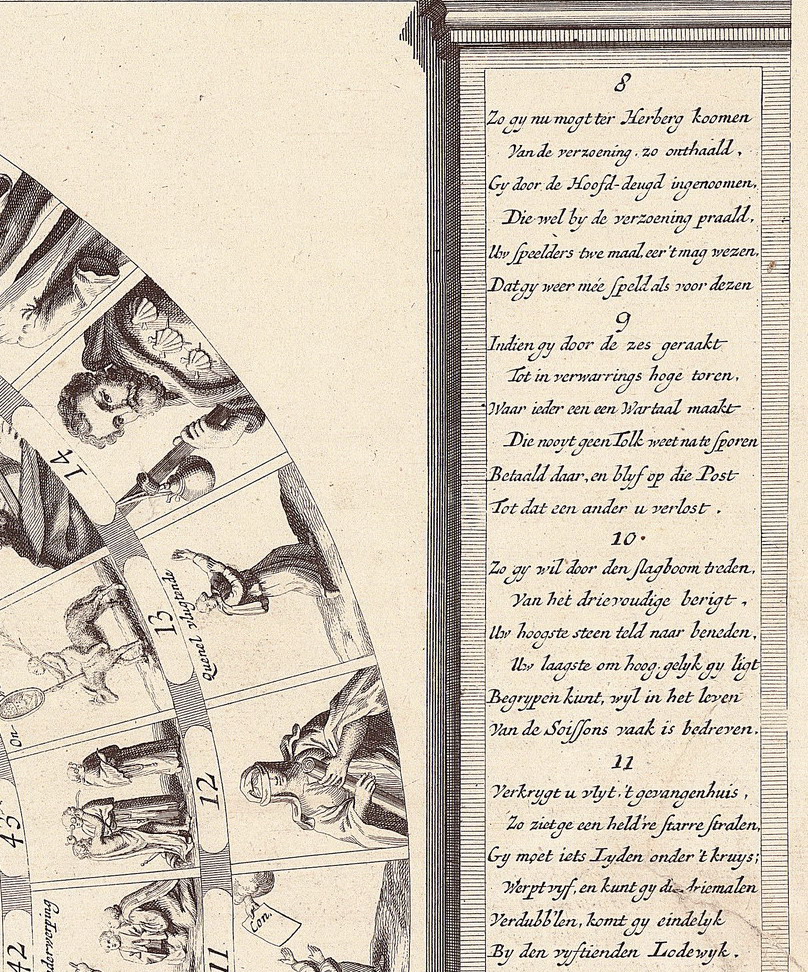 8
Zo gy nu mogt ter Herberg koomen
Van de verzoening, zo onthaald,
Gy door de Hoofd-deugd ingenoomen,
Die wel by de verzoening praald,
Uw speelders twe maal, eer't mag wezen,
Dat gy weer meé speld als voor dezen
9
Indien gy door de zes geraakt
Tot in verwarrings hoge toren,
Waar ieder een een Wartaal maakt
Die nooyt geen Tolk weet na te sporen
Betaald daar, en blyf op die Post
Tot dat een ander u verlost.
10.
Zo gy wil door den slagboom treden,
Van het drievoudige berigt,
Uw hoogste steen teld naar beneden,
Uw laagste om hoog, gelyk gy ligt
Begrypen kunt, wyl in het leven
Van de Soissons vaak is bedreven.
11
Verkrygt u vlyt 't gevangenhuis,
Zo ziet ge een held're starre stralen,
Gy moet iets Lyden onder 't kruys;
Werpt vyf, en kunt gy die driemalen
Verdubb'len, komt gy eindelyk
By den vyftienden Lodewyk.
14
13
Quenel vlugtende
On-
12
45
Con.
derwerping
42
11